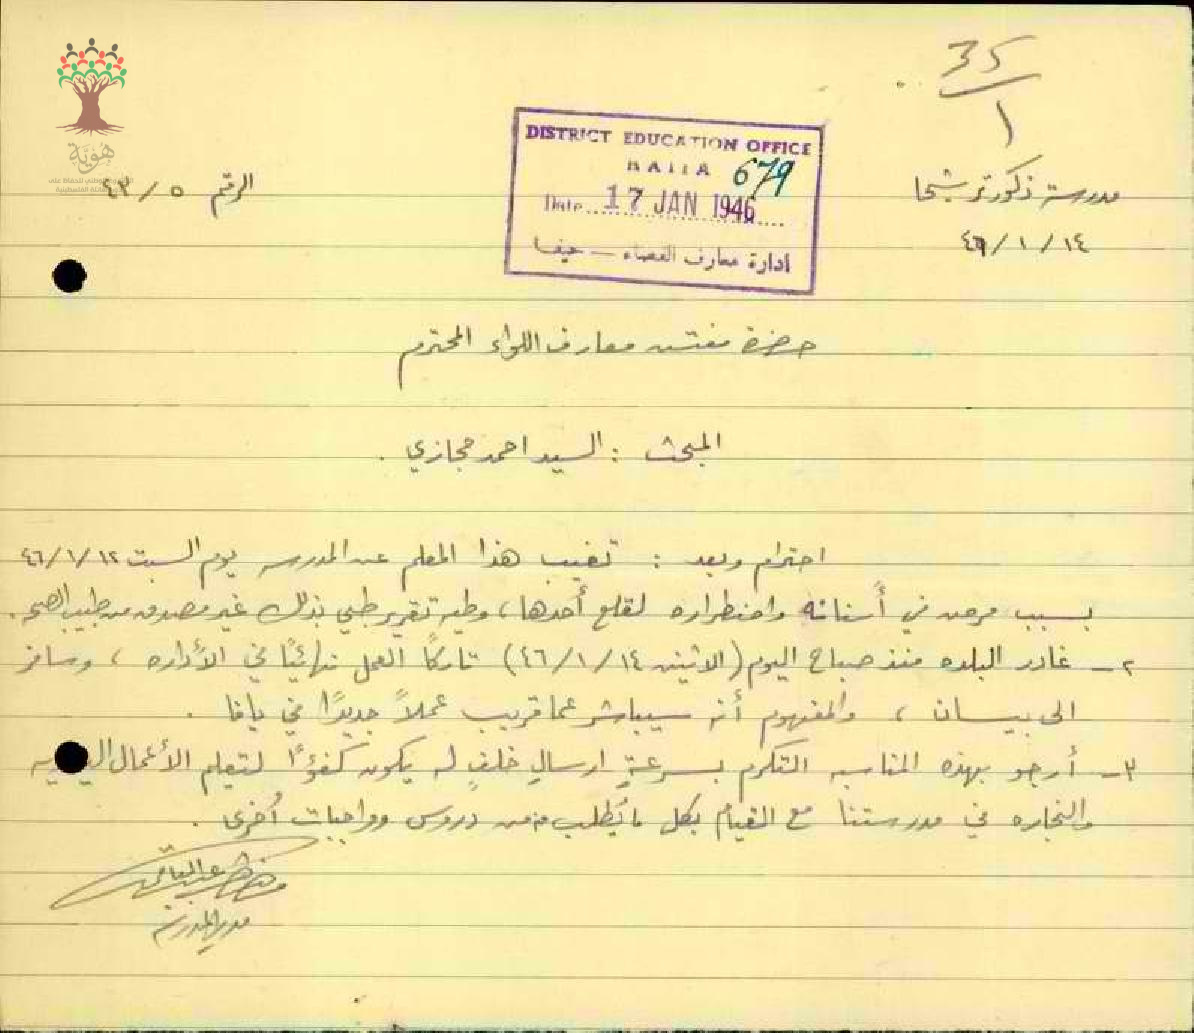 35
١
DISTRICT EDUCATION OFFICE
HAIFA 679
Date 17 JAN 1946
ادارة معارف القضاء — حيفا
هوية
مدرسة ذكور ترشيحا
الرقم ٤٣/٥
٤٦/١/١٤
حضرة مفتش معارف اللواء المحترم
المبحث : السيد احمد حجازي .
احترام وبعد : تغيب هذا المعلم عن المدرسه يوم السبت ٤٦/١/١٢
بسبب مرض في أسنانه واضطراره لقلع أحدها، وطيه تقرير طبي بذلك غير مصدق من طبيب الصحه.
٢ـ غادر البلده منذ صباح اليوم (الاثنين ٤٦/١/١٤) تاركًا العمل نهائيًا في الأداره ، وسافر
الى بيسان ، والمفهوم أنه سيباشر عما قريب عملاً جديدًا في يافا .
٣ـ أرجو بهذه المناسبه التكرم بسرعة ارسال خلفٍ له يكون كفؤًا لتعلم الأعمال اليدويه
والنجاره في مدرستنا مع القيام بكل ما يُطلب منه من دروس وواجبات أخرى .
عبد الباقي
مدير المدرسة